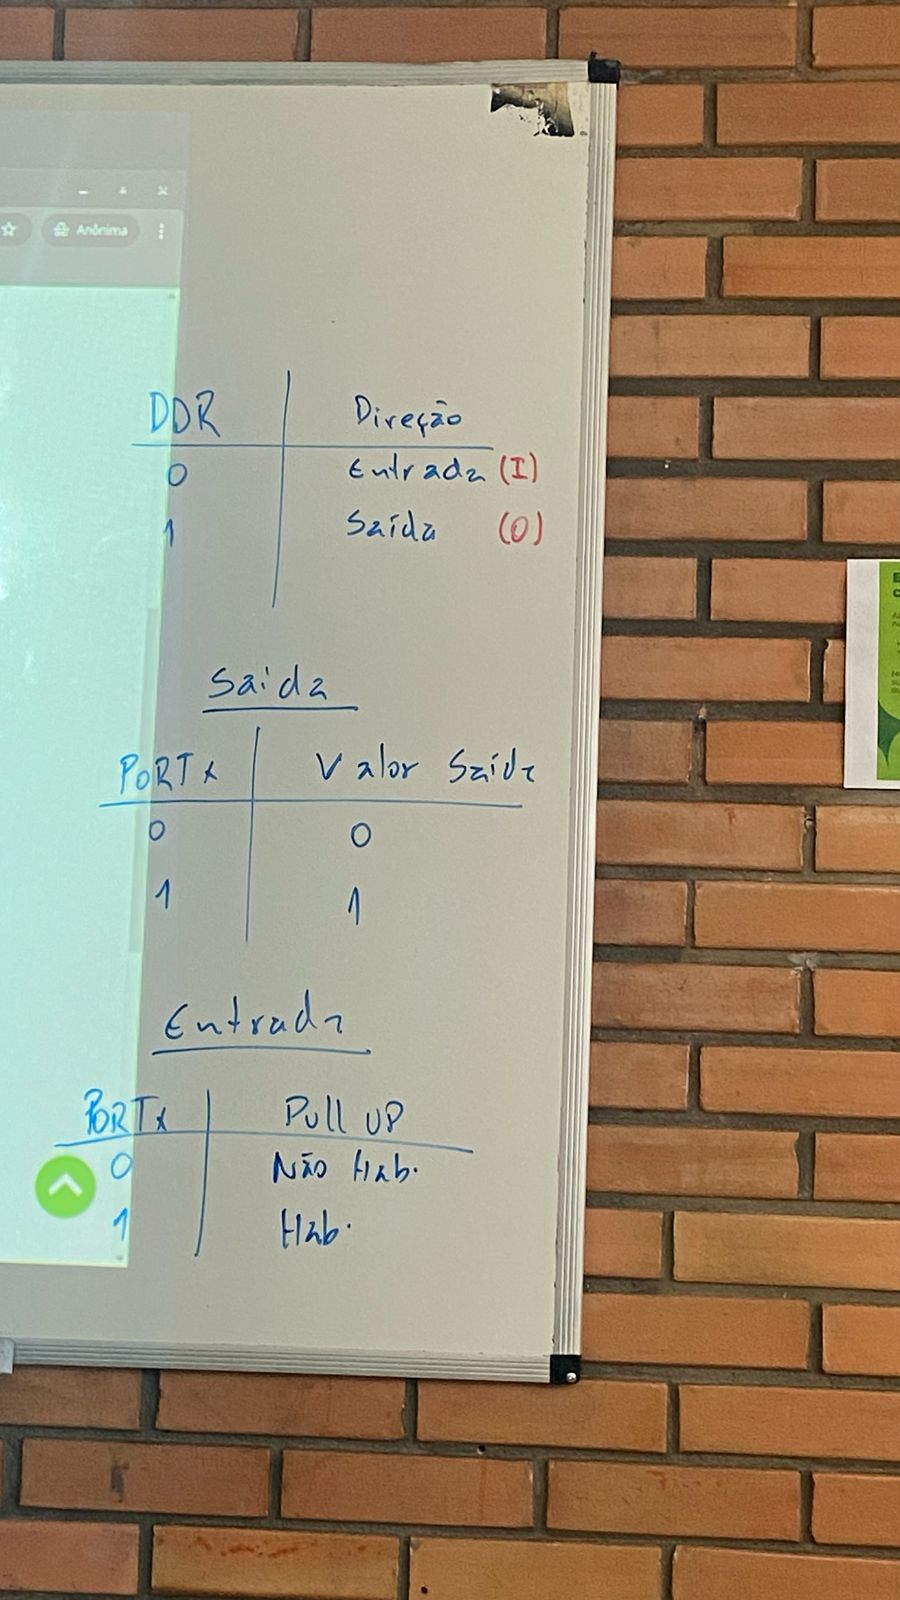 Anônima
DDR Direção
0 Entrada (I)
1 Saída (O)
Saida
PORTx Valor Saida
0 0
1 1
Entrada
PORTx Pull UP
0 Não Hab.
1 Hab.